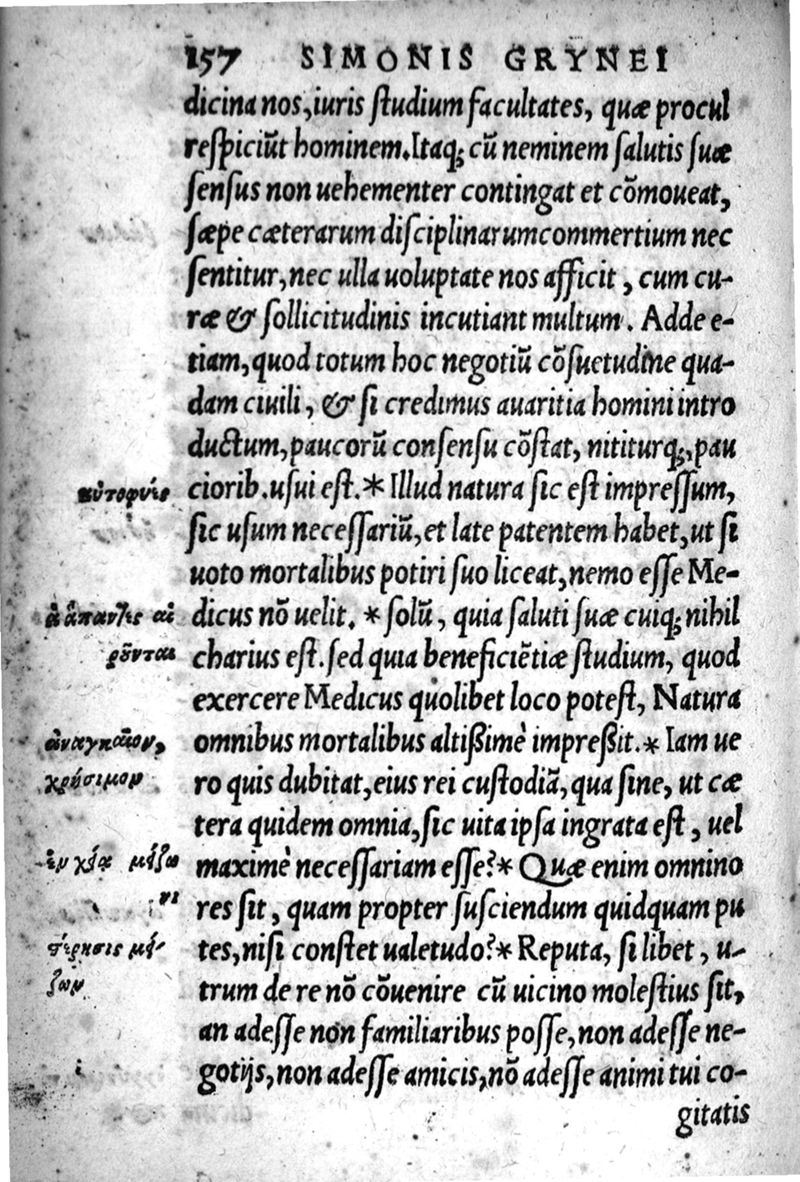 157 SIMONIS GRYNEI
dicina nos, iuris ſtudium facultates, quæ procul
reſpiciũt hominem. Itaq; cũ neminem ſalutis ſuæ
ſenſus non uehementer contingat et cõmoueat,
ſæpe cæterarum diſciplinarumcommertium nec
ſentitur, nec ulla uoluptate nos afficit, cum cu-
ræ & ſollicitudinis incutiant multum. Adde e-
tiam, quod totum hoc negotiũ cõſuetudine qua-
dam ciuili, & ſi credimus auaritia homini intro
ductum, paucorũ conſenſu cõſtat, nititurq;, pau
αὐτοφυὲς
ciorib. uſui eſt.* Illud natura ſic eſt impreſſum,
ſic uſum neceſſariũ, et late patentem habet, ut ſi
uoto mortalibus potiri ſuo liceat, nemo eſſe Me-
ἃ ἅπαντες αἱ
dicus nõ uelit. * ſolũ, quia ſaluti ſuæ cuiq; nihil
ροῦνται
charius eſt. ſed quia beneficiẽtiæ ſtudium, quod
exercere Medicus quolibet loco poteſt, Natura
ἀναγκαῖον,
omnibus mortalibus altißimè impreßit.* Iam ue
χρήσιμον
ro quis dubitat, eius rei cuſtodiã, qua ſine, ut cæ
tera quidem omnia, ſic uita ipſa ingrata eſt, uel
maximè neceſſariam eſſe?* Quæ enim omnino
res ſit, quam propter ſuſciendum quidquam pu
tes, niſi conſtet ualetudo?* Reputa, ſi libet, u-
trum de re nõ cõuenire cũ uicino moleſtius ſit,
an adeſſe non familiaribus poſſe, non adeſſe ne-
gotijs, non adeſſe amicis, nõ adeſſe animi tui co-
gitatis